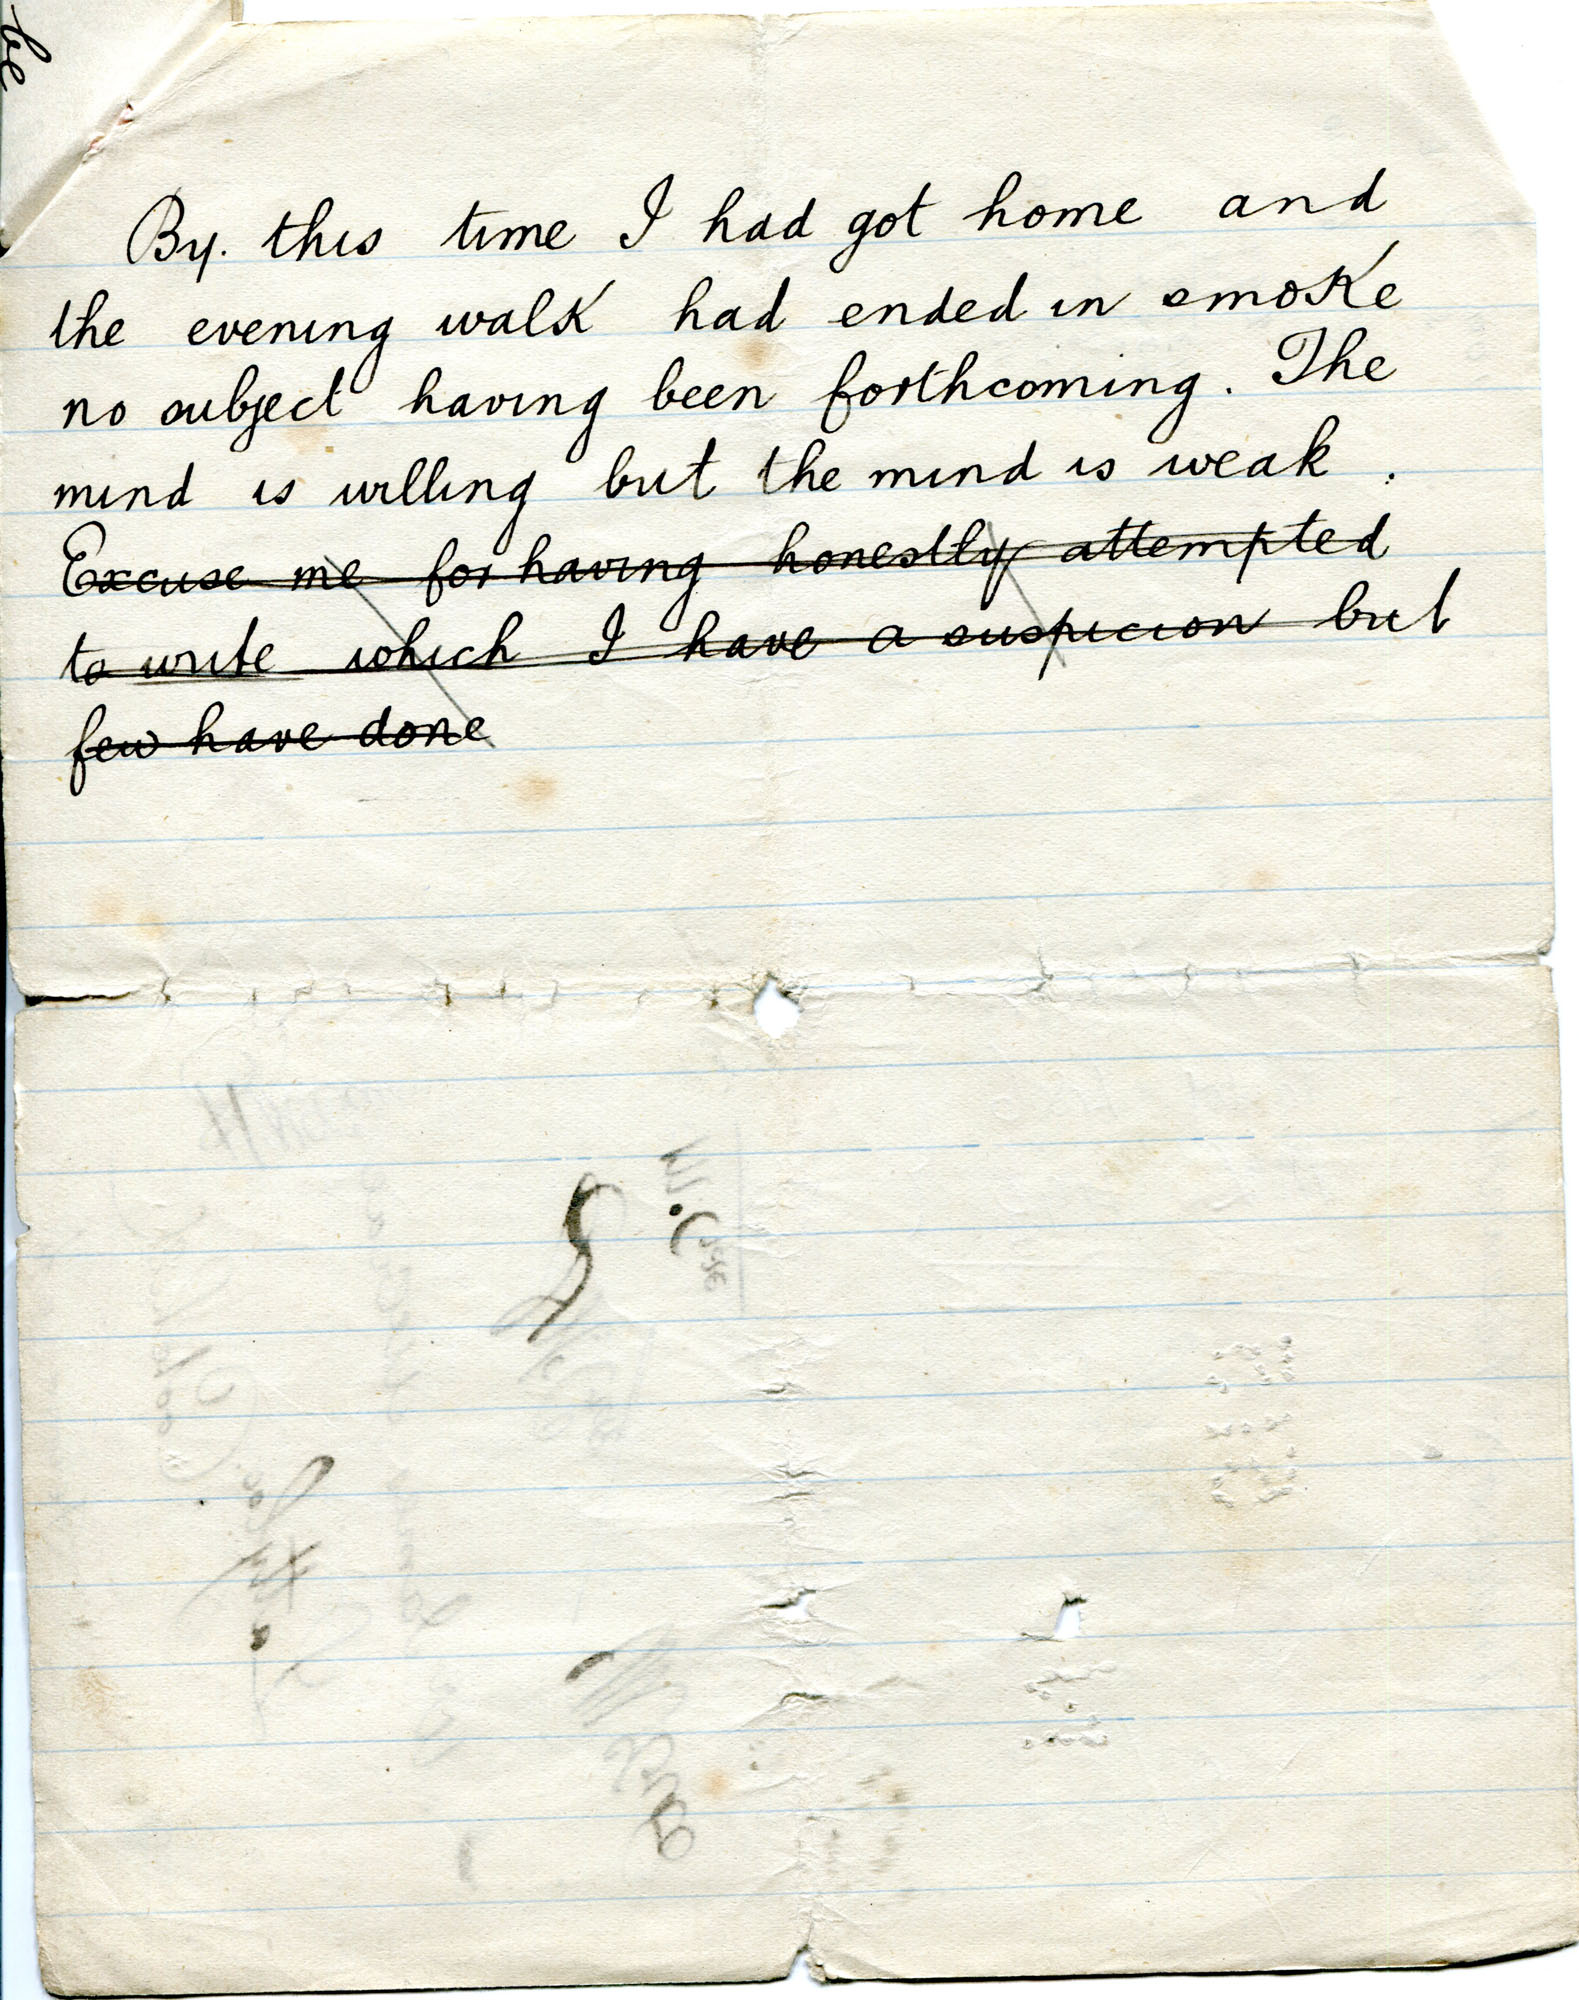 be
By. this time I had got home and
the evening walk had ended in smoke
no subject having been forthcoming. The
mind is willing but the mind is weak.
Excuse me for having honestly attempted
to write which I have a suspicion but
few have done